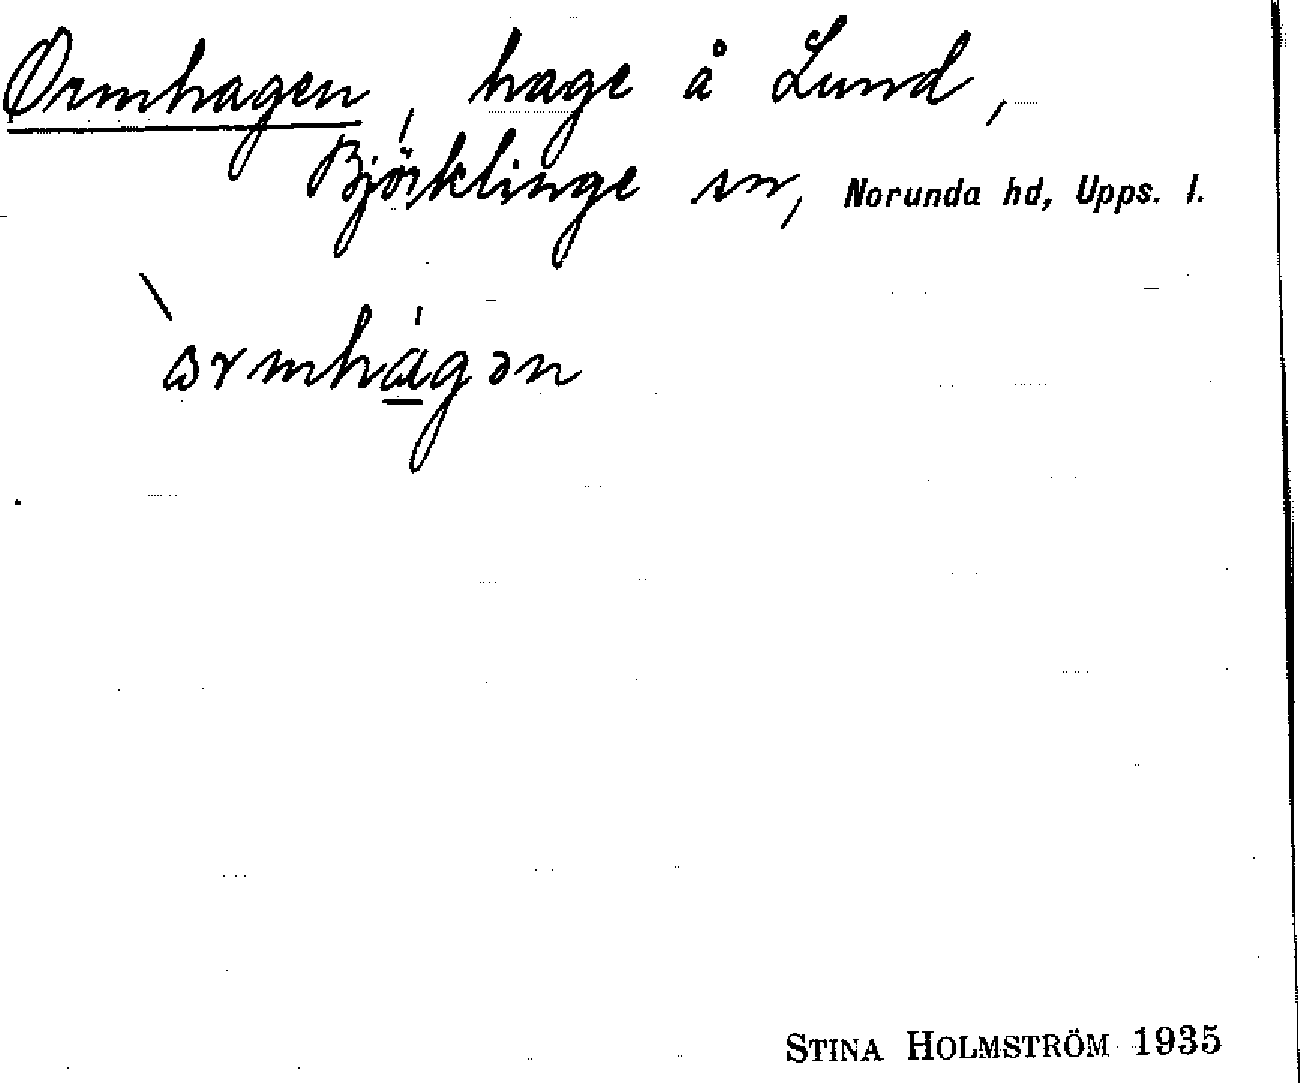 Ormhagen, hage å Lund,
Björklinge sn, Norunda hd, Upps. l.
òrmhágən
STINA HOLMSTRÖM 1935